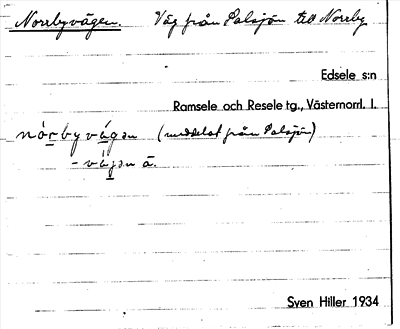 Norrbyvägen. Väg från Salsjön till Norrby
Edsele s:n
Ramsele och Resele tg., Västernorrl. l.
nórbyvágen (meddelat från Salsjön)
-vágen ä.
Sven Hiller 1934